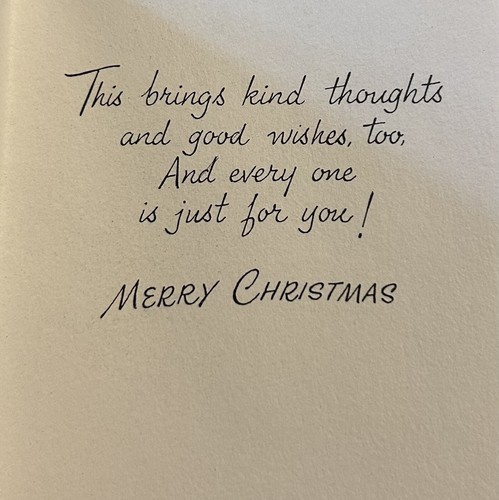 This brings kind thoughts
and good wishes, too,
And every one
is just for you!
MERRY CHRISTMAS